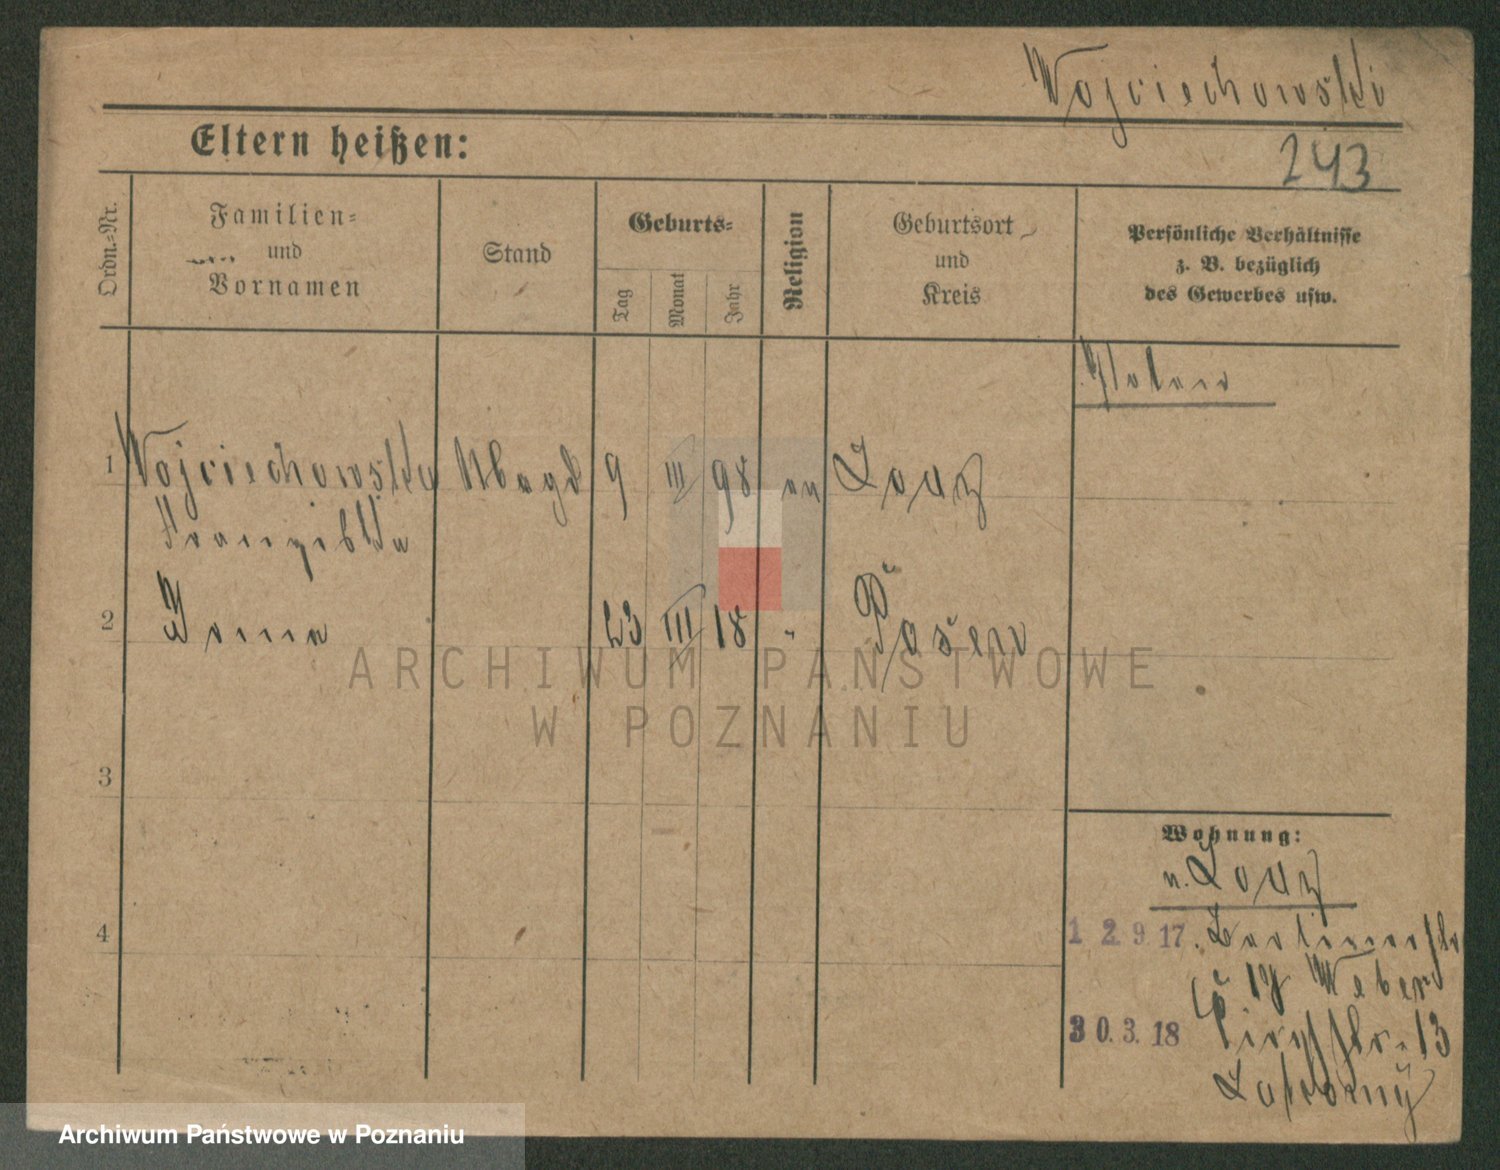 Wojciechowski
Eltern heißen:
243
Ordn.-Nr.
Familien-
und
Vornamen
Stand
Geburts-
Tag
Monat
Jahr
Religion
Geburtsort
und
Kreis
Persönliche Verhältnisse
z. B. bezüglich
des Gewerbes usw.
1 Wojciechowska Magd 9 III 98
Franziska
2 23 III 18 " Posen
ARCHIWUM PAŃSTWOWE
W POZNANIU
3
Wohnung:
4
12 9 17. Berlinerstr
19 Weber
30.3.18 13
Archiwum Państwowe w Poznaniu